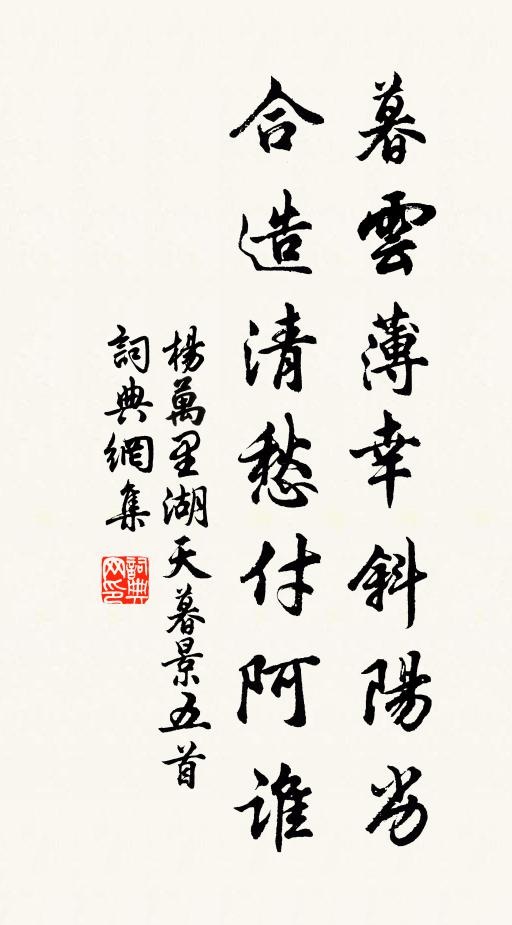 暮雲薄幸斜陽劣
合造清愁付阿誰
楊萬里湖天暮景五首
詞典網集
詞典網印